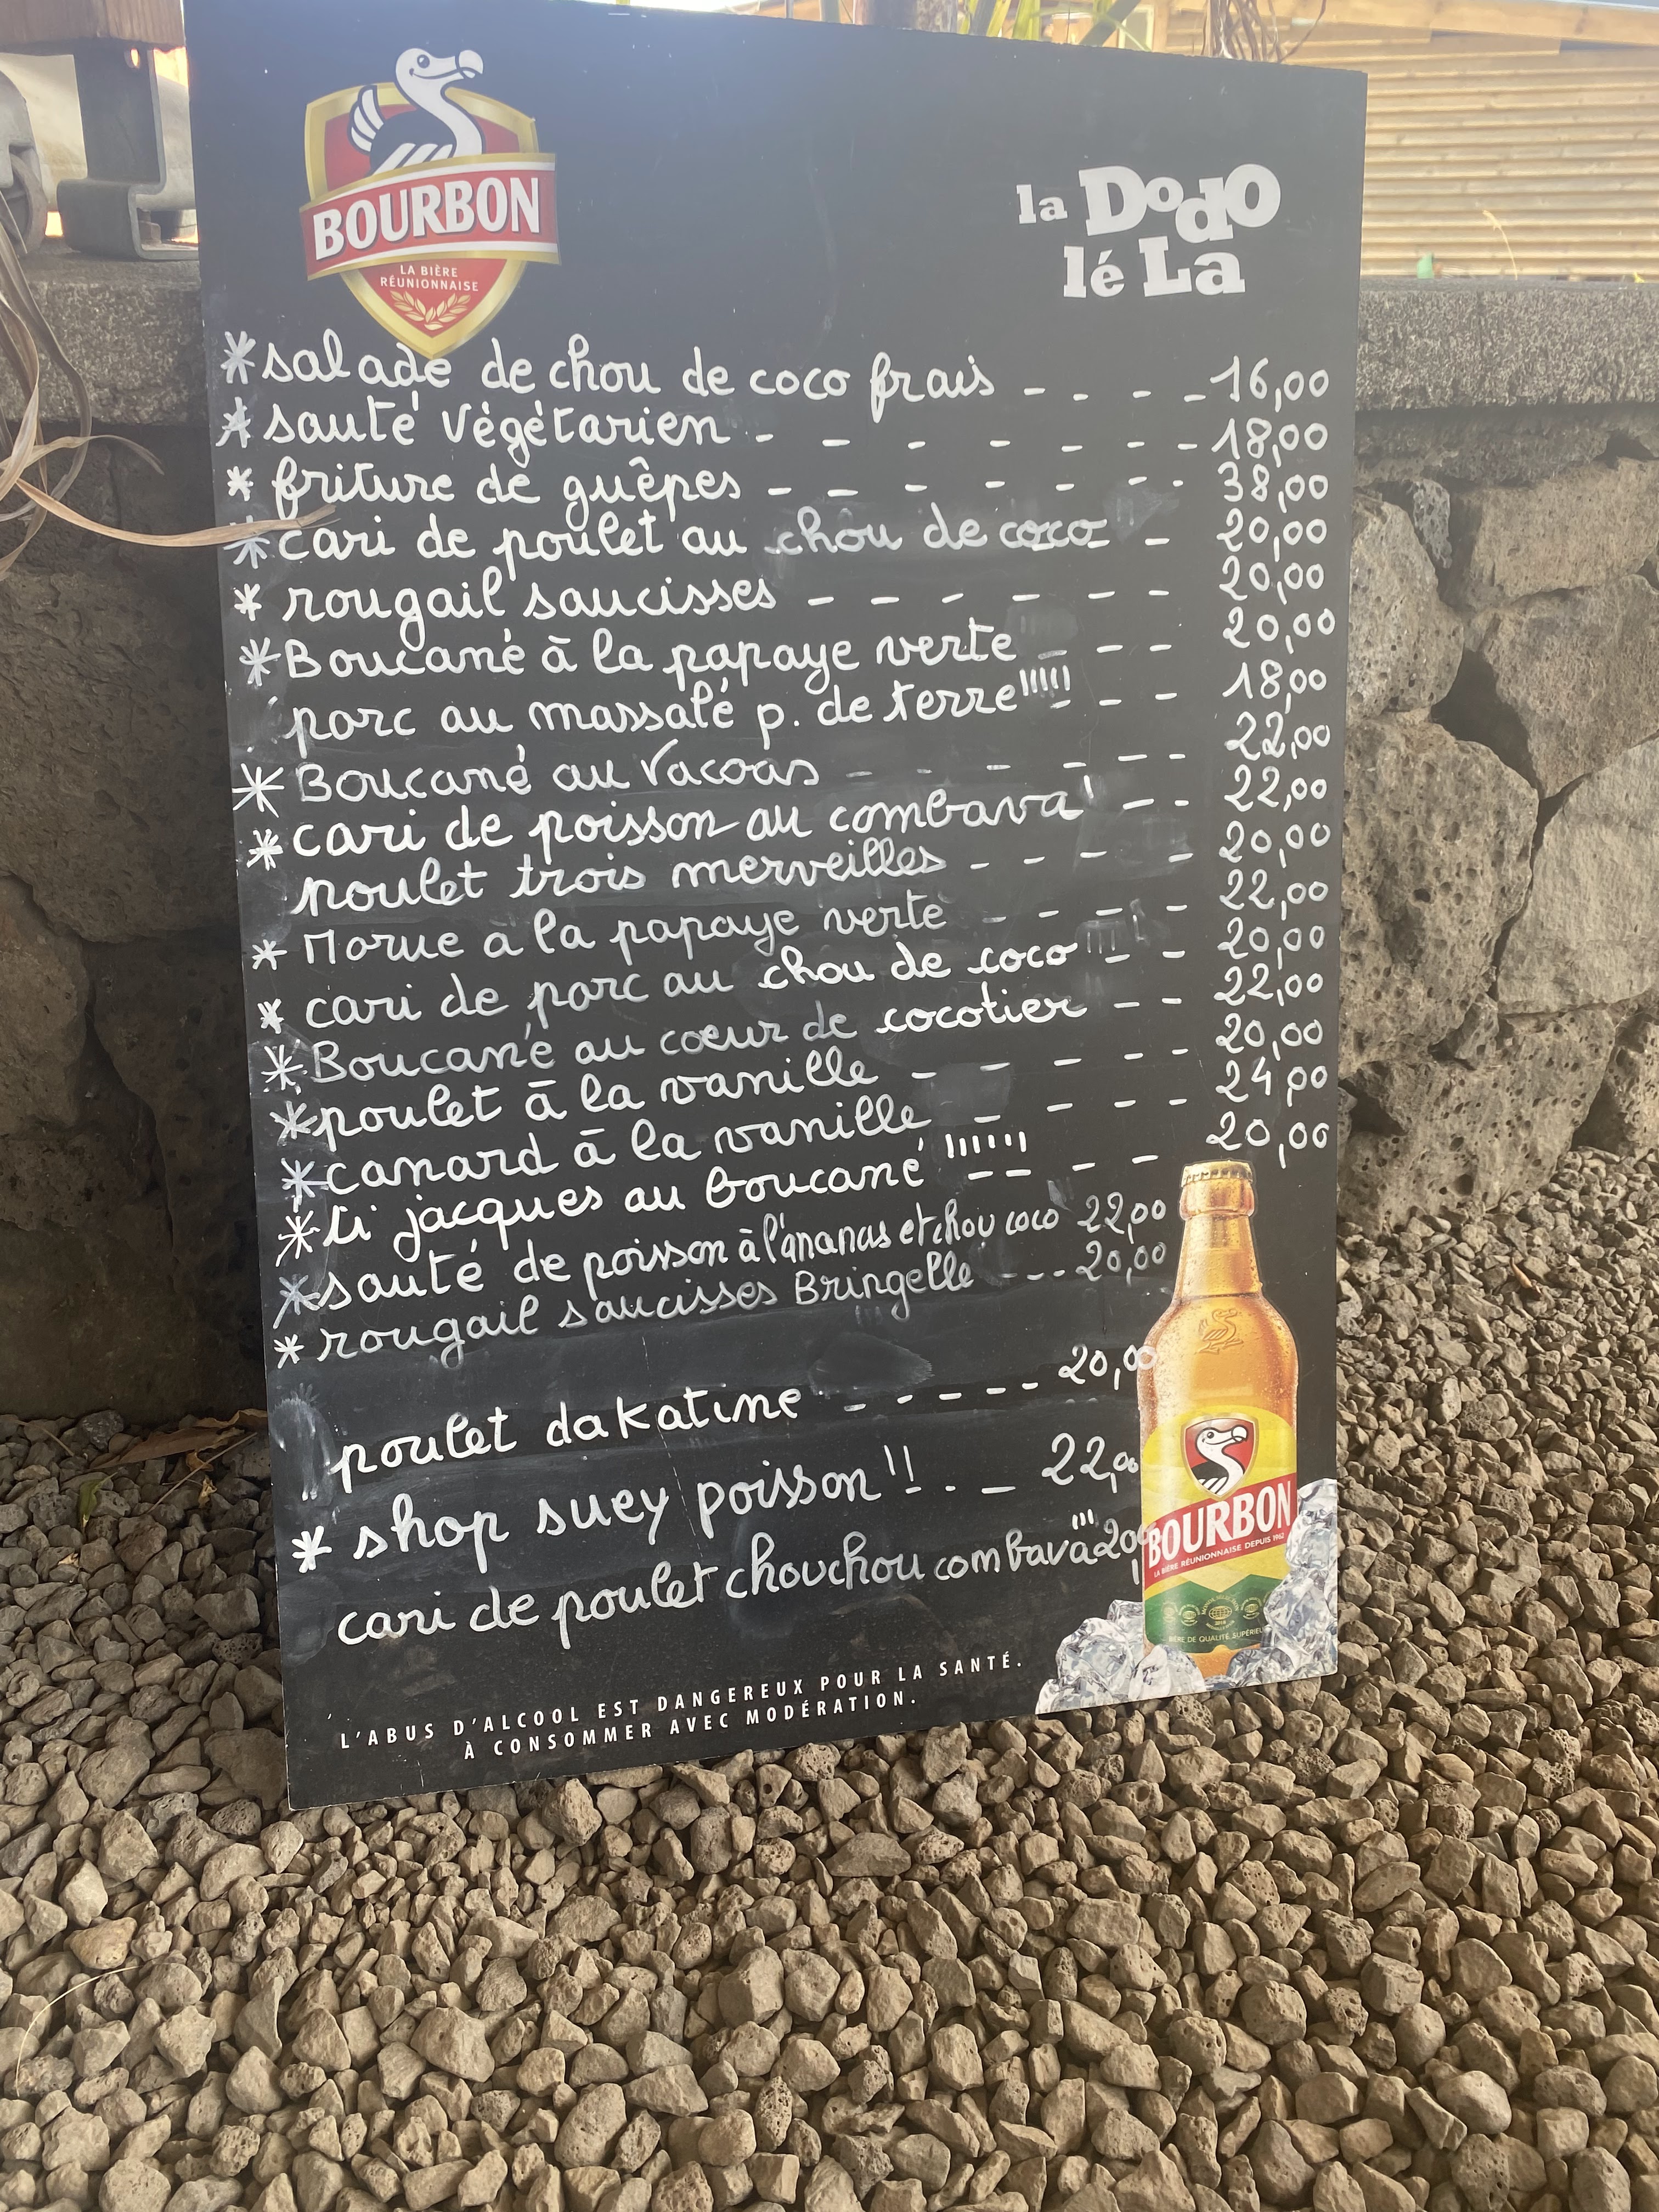 BOURBON
LA BIÈRE
RÉUNIONNAISE
la Dodo
lé La
*salade de chou de coco frais - - - - 16,00
*sauté végétarien - - - - - - - 18,00
* friture de guêpes - - - - - - - 38,00
*cari de poulet au chou de coco - 20,00
* rougail saucisses - - - - - - 20,00
*Boucané à la papaye verte - - - 20,00
porc au massalé p. de terre!!!!! - - 18,00
*Boucané au Vacoas - - - - - - 22,00
*cari de poisson au combava! - - 22,00
poulet trois merveilles - - - - 20,00
* Morue à la papaye verte - - - - 22,00
* cari de porc au chou de coco!!! - - 20,00
*Boucané au coeur de cocotier - - 22,00
*poulet à la vanille - - - - - 20,00
*canard à la vanille - - - - - 24,00
*ti jacques au boucané !!!!!! - - - - 20,00
*sauté de poisson à l'ananas et chou coco 22,00
* rougail saucisses Bringelle - - - 20,00
poulet dakatine - - - - - - 20,00
* shop suey poisson !! . _ 22,00
cari de poulet chouchou combava!!! 20,00
BOURBON
LA BIÈRE RÉUNIONNAISE DEPUIS 1962
BIÈRE DE QUALITÉ SUPÉRIEURE
L'ABUS D'ALCOOL EST DANGEREUX POUR LA SANTÉ.
À CONSOMMER AVEC MODÉRATION.